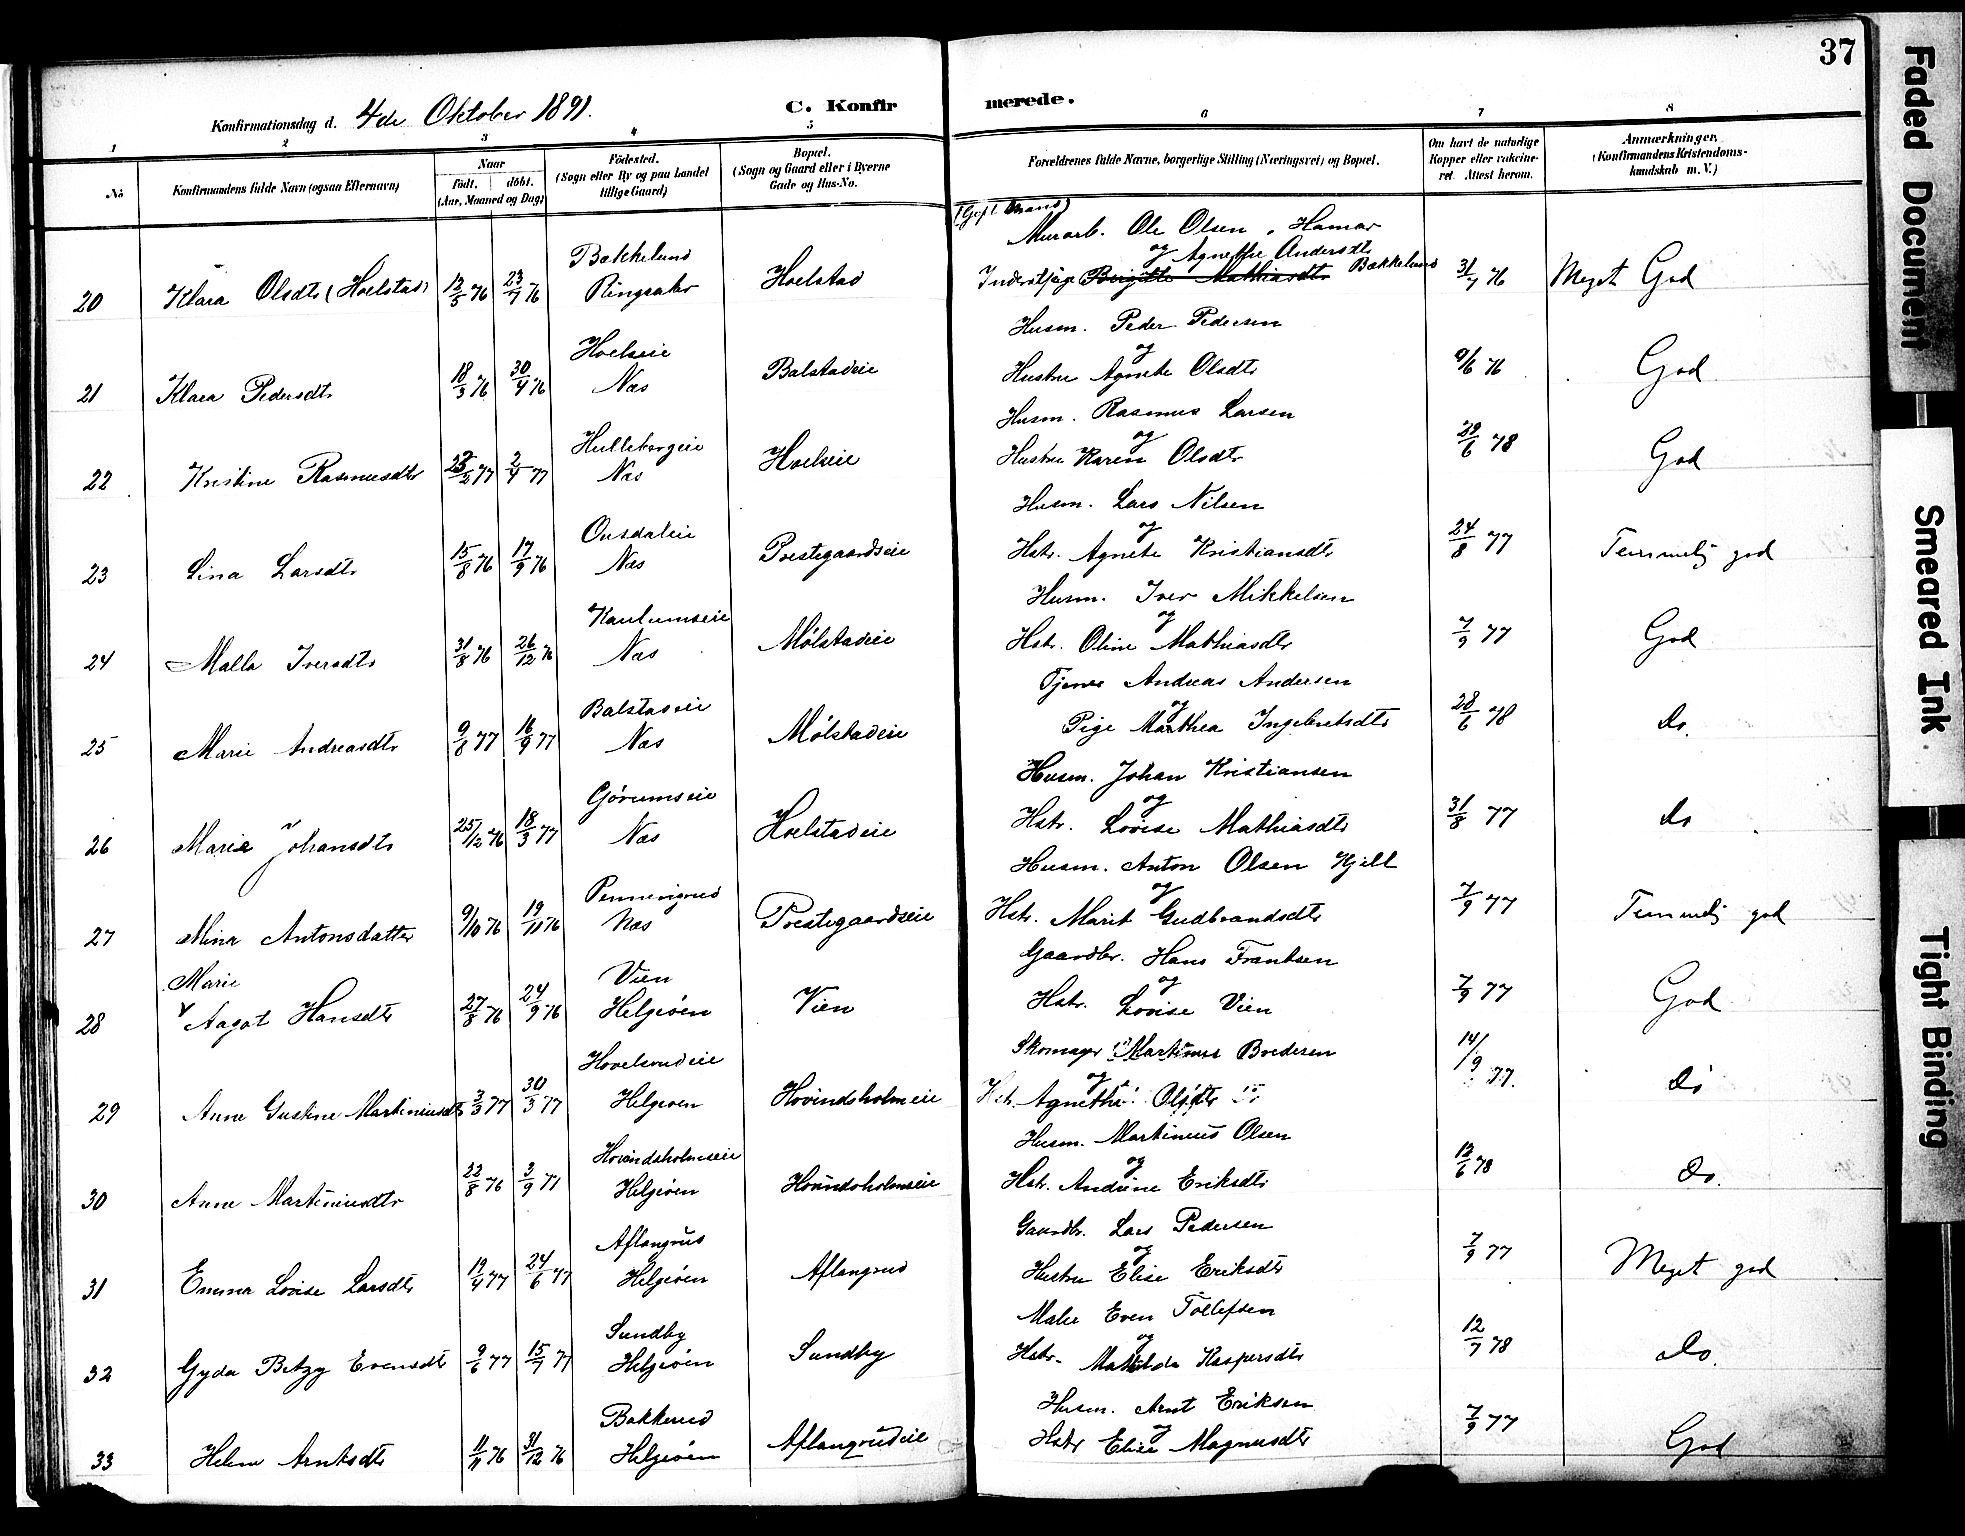 37
Faded Document
Smeared Ink
Tight Binding
Konfirmationsdag d. 4de Oktober 1891.
C. Konfirmerede.
1 2 3 4 5 6 7 8
No
Konfirmandens fulde Navn (ogsaa Efternavn)
Naar
født. døbt.
(Aar, Maaned og Dag)
Fødested.
(Sogn eller By og paa Landet
tillige Gaard)
Bopæl.
(Sogn og Gaard eller i Byerne
Gade og Hus-No.
Forældrenes fulde Navne, borgerlige Stilling (Næringsvei) og Bopæl.
Om havt de naturlige
Kopper eller vakcine-
ret. Attest herom.
Anmærkninger,
(Konfirmandens Kristendoms-
kundskab m. V.)
(Gift Mand)
Murarb. Ole Olsen, Hamar
Bækkelund og Agnethe Andersdtr
20 Klara Olsdtr (Hoelstad) 12/5 76 23/7 76 Ringsaker Hoelstad Inderstpige Birgitte Mathiasdtr Bækkelund 31/7 76 Meget God
Husm. Peder Pedersen
Hoelseie og
21 Klara Pedersdtr 18/3 76 30/4 76 Næs Balstadeie Hustru Agnete Olsdtr 9/6 76 God
Husm. Rasmus Larsen
Hullebergeie og
22 Kristine Rasmusdtr 25/2 77 2/4 77 Næs Hoelseie Hustru Karen Olsdtr 29/6 78 God
Husm. Lars Nilsen
Onsdaleie og
23 Lina Larsdtr 15/8 76 17/9 76 Næs Prestegaardseie Hstr. Agnete Kristiansdtr 24/8 77 Temmelig god
Husm. Iver Mikkelsen
Kaulumseie og
24 Malla Iversdtr 31/8 76 26/12 76 Næs Mølstadeie Hstr. Oline Mathiasdtr 7/9 77 God
Tjener Andreas Andersen
Balstadeie og
25 Marie Andreasdtr 9/8 77 16/9 77 Næs Mølstadeie Pige Marthea Ingebretsdtr 28/6 78 do.
Husm. Johan Kristiansen
Gjørumseie og
26 Marie Johansdtr 25/12 76 18/3 77 Næs Hoelstadeie Hstr. Lovise Mathiasdtr 31/8 77 do
Husm. Anton Olsen Kjell
Pennerigrud og
27 Mina Antonsdatter 9/10 76 19/11 76 Næs Prestegaardseie Hstr. Marit Gudbrandsdtr 7/9 77 Temmelig god
Gaardbr. Hans Frantsen
Marie Vien og
28 Aagot Hansdtr 27/8 76 24/9 76 Helgeøen Vien Hstr. Lovise Vien 7/9 77 God
Skomager Martinus Bredesen
Hovelsrudeie og
29 Anne Gustine Martiniusdtr 3/3 77 30/3 77 Helgeøen Hovindsholmeie Hstr. Agnethe Olsdtr 14/9 77. do
Husm. Martinius Olsen
Hovindsholmseie og
30 Anne Martiniusdtr 22/8 76 3/9 77 Helgeøen Hovindsholmseie Hstr. Andrine Eriksdtr 12/6 78 do.
Gaardbr. Lars Pedersen
Aflangrud og
31 Emma Lovise Larsdtr 19/4 77 24/6 77 Helgeøen Aflangrud Hustru Elise Eriksdtr 7/9 77 Meget god
Maler Even Tollefsen
Sundby og
32 Gyda Betzy Evensdtr 9/6 77 15/7 77 Helgeøen Sundby Hstr. Mathilde Kaspersdtr 12/7 78 do.
Husm. Arnt Eriksen
Bakkerud og
33 Helene Arntsdtr 11/11 76 31/12 76 Helgeøen Aflangrudeie Hstr Elise Magnusdtr 7/9 77 God